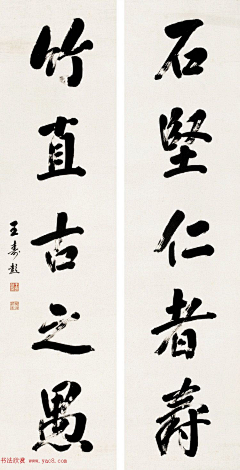 石堅仁者壽
竹直古之愚
王壽彭
书法欣赏